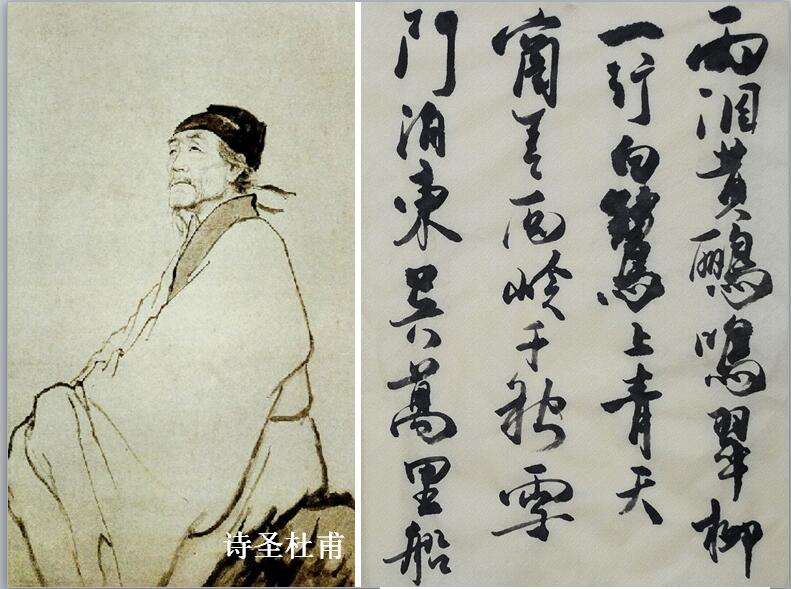 诗圣杜甫
兩個黃鸝鳴翠柳
一行白鷺上青天
窗含西嶺千秋雪
門泊東吳萬里船